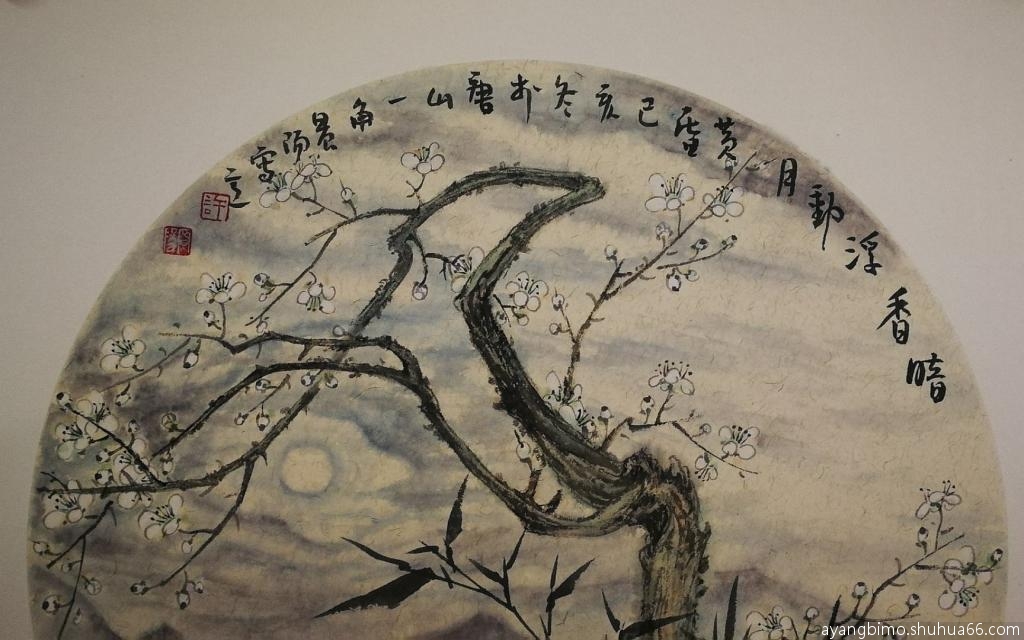 暗香浮動月黃昏
己亥冬於唐山一角晨陽
許
ayangbimo.shuhua66.com